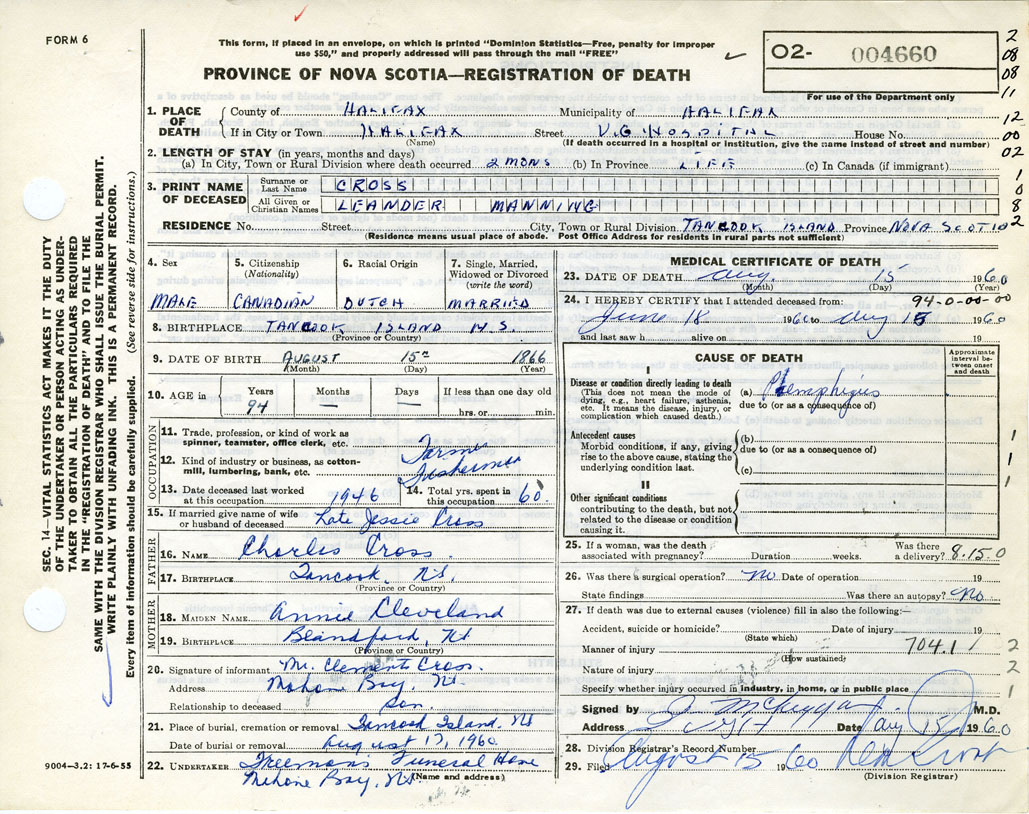 FORM 6
This form, if placed in an envelope, on which is printed "Dominion Statistics—Free, penalty for improper
use $50," and properly addressed will pass through the mail "FREE"
PROVINCE OF NOVA SCOTIA—REGISTRATION OF DEATH
02- 004660
For use of the Department only
2
08
08
11
12
00
02
1
0
8
2
SEC. 14—VITAL STATISTICS ACT MAKES IT THE DUTY
OF THE UNDERTAKER OR PERSON ACTING AS UNDER-
TAKER TO OBTAIN ALL THE PARTICULARS REQUIRED
IN THE "REGISTRATION OF DEATH" AND TO FILE THE
SAME WITH THE DIVISION REGISTRAR WHO SHALL ISSUE THE BURIAL PERMIT.
WRITE PLAINLY WITH UNFADING INK. THIS IS A PERMANENT RECORD.
Every item of information should be carefully supplied. (See reverse side for instructions.)
1. PLACE OF DEATH County of HALIFAX Municipality of HALIFAX
If in City or Town HALIFAX Street V.G HOSPITAL House No.
(Name) (If death occurred in a hospital or institution, give the name instead of street and number)
2. LENGTH OF STAY (in years, months and days)
(a) In City, Town or Rural Division where death occurred 2 MONS (b) In Province LIFE (c) In Canada (if immigrant)
3. PRINT NAME OF DECEASED Surname or Last Name CROSS
All Given or Christian Names LEANDER MANNING
RESIDENCE No. Street City, Town or Rural Division TANCOOK ISLAND Province NOVA SCOTIA
(Residence means usual place of abode. Post Office Address for residents in rural parts not sufficient)
4. Sex 5. Citizenship (Nationality) 6. Racial Origin 7. Single, Married, Widowed or Divorced (write the word)
MALE CANADIAN DUTCH MARRIED
8. BIRTHPLACE TANCOOK ISLAND N.S.
(Province or Country)
9. DATE OF BIRTH AUGUST 15TH 1866
(Month) (Day) (Year)
10. AGE in Years Months Days If less than one day
94 — — hrs. or min.
OCCUPATION
11. Trade, profession, or kind of work as
spinner, teamster, office clerk, etc. Farmer
12. Kind of industry or business, as cotton-
mill, lumbering, bank, etc. Fisherman
13. Date deceased last worked at this occupation 1946 14. Total yrs. spent in this occupation 60.
15. If married give name of wife or husband of deceased Late Jessie Cross
FATHER
16. NAME Charles Cross.
17. BIRTHPLACE Tancook, N.S.
(Province or Country)
MOTHER
18. MAIDEN NAME Annie Cleveland
19. BIRTHPLACE Blandford, N.S
(Province or Country)
20. Signature of informant Mr. Clements Cross.
Address Mahone Bay, N.S.
Relationship to deceased Son.
21. Place of burial, cremation or removal Tancook Island. NS
Date of burial or removal August 17, 1960
22. UNDERTAKER Freemans Funeral Home
Mahone Bay, NS (Name and address)
9004—3.2: 17-6-55
MEDICAL CERTIFICATE OF DEATH
23. DATE OF DEATH Aug. 15 1960
(Month) (Day) (Year)
24. I HEREBY CERTIFY that I attended deceased from: 94-0-00-00
June 18 1960 to Aug 15 1960
and last saw h alive on 19
CAUSE OF DEATH
Approximate interval between onset and death
I
Disease or condition directly leading to death
(This does not mean the mode of
dying, e.g., heart failure, asthenia,
etc. It means the disease, injury, or
complication which caused death.)
(a) Pemphigus
due to (or as a consequence of)
Antecedent causes
Morbid conditions, if any, giving
rise to the above cause, stating the
underlying condition last.
(b)
due to (or as a consequence of)
(c)
1
1
1
II
Other significant conditions
contributing to the death, but not
related to the disease or condition
causing it.
25. If a woman, was the death associated with pregnancy? Duration weeks. Was there a delivery? 8.15.0
26. Was there a surgical operation? No Date of operation 19
State findings Was there an autopsy? No
27. If death was due to external causes (violence) fill in also the following:—
Accident, suicide or homicide? Date of injury 19
(State which)
Manner of injury 704.1 2
(How sustained)
Nature of injury 2
Specify whether injury occurred in industry, in home, or in public place 1
Signed by M.D.
Address Date Aug 15 1960
28. Division Registrar's Record Number
29. Filed August 15 1960
(Division Registrar)